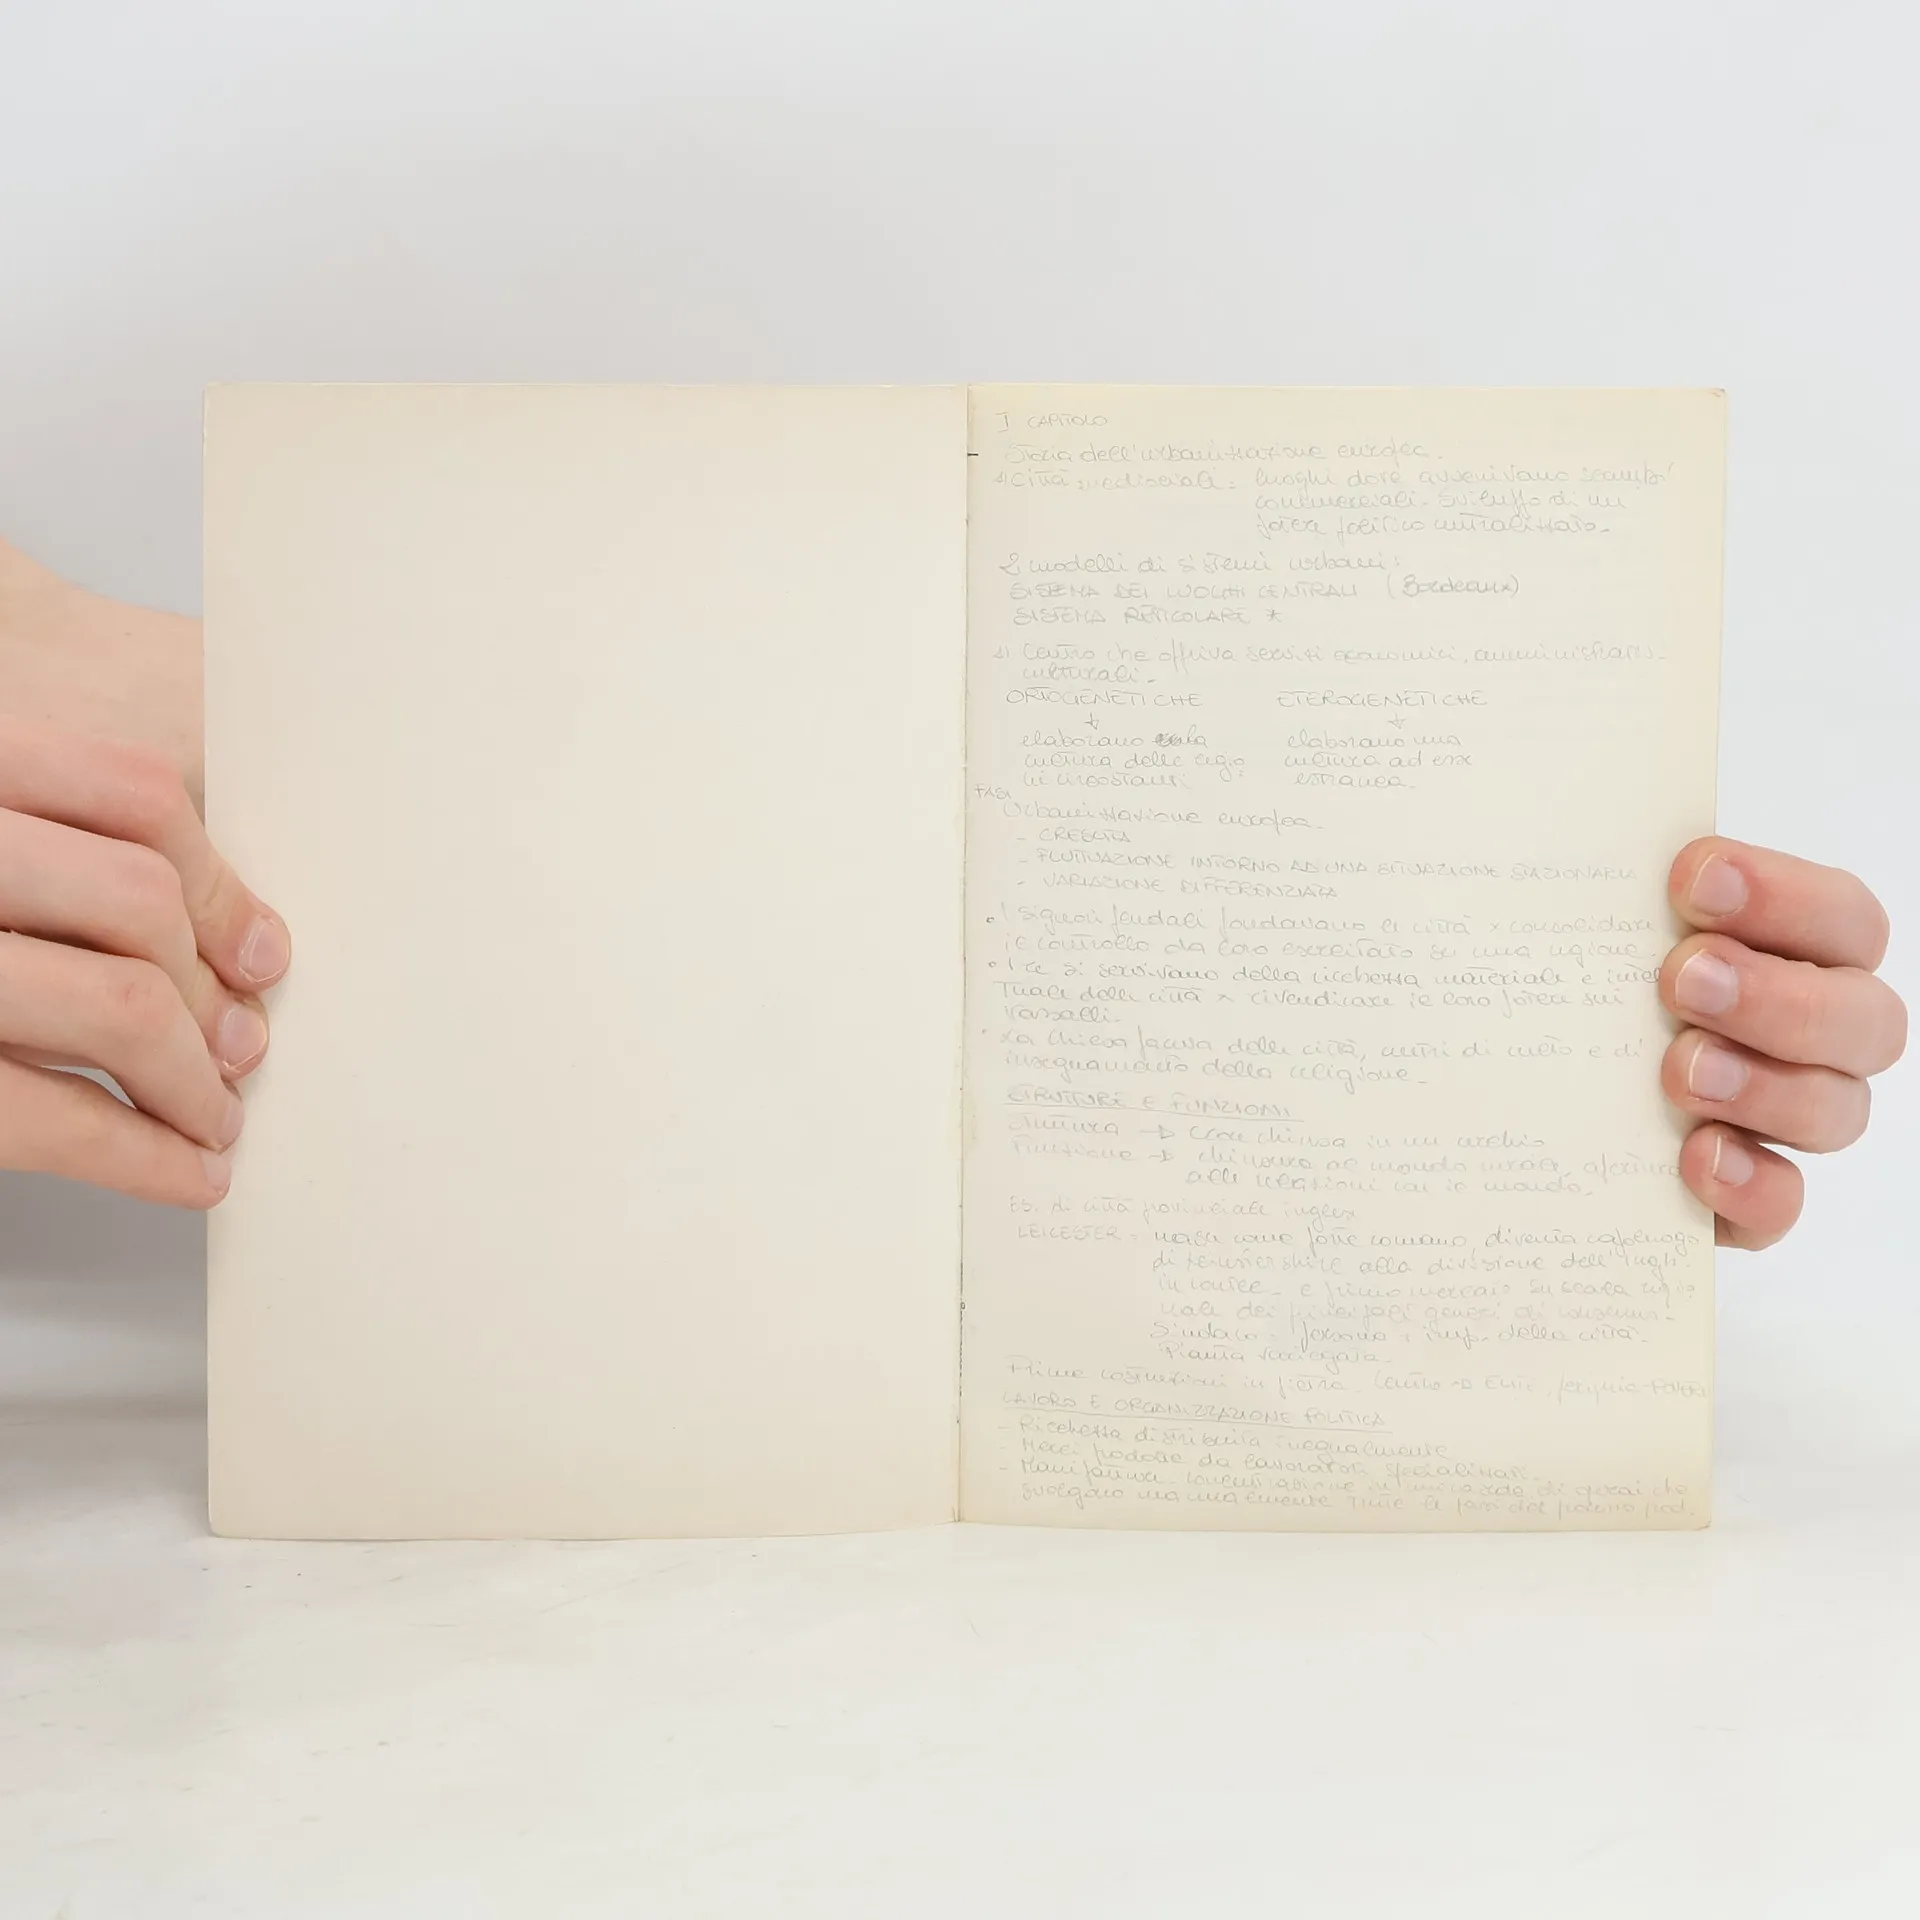 I CAPITOLO
Storia dell'urbanizzazione europea.
1) Città medioevali = luoghi dove avvenivano scambi
commerciali. Sviluppo di un
potere politico centralizzato.
2 modelli di sistemi urbani:
SISTEMA DEI LUOGHI CENTRALI (Bordeaux)
SISTEMA RETICOLARE *
1) Centro che offriva servizi economici, amministrativi
culturali.
ORTOGENETICHE ETEROGENETICHE
↓ ↓
elaborano la elaborano una
cultura delle regio cultura ad esse
ni circostanti; estranea.
FASI
Urbanizzazione europea.
- CRESCITA
- FLUTTUAZIONE INTORNO AD UNA SITUAZIONE STAZIONARIA
- VARIAZIONE DIFFERENZIATA
• I signori feudali fondavano le città x consolidare
il controllo da loro esercitato su una regione.
• I re si servivano della ricchezza materiale e intel
tuale delle città x rivendicare il loro potere sui
vassalli.
• La Chiesa faceva delle città, centri di culto e di
insegnamento della religione.
STRUTTURE E FUNZIONI
Struttura → come chiusa in un cerchio
Funzione → chiusura al mondo rurale, apertura
alle relazioni con il mondo.
ES. di città provinciale inglese
LEICESTER = nasce come forte romano, diventa capoluogo
di alla divisione dell'Ingh.
in contee. e primo mercato su scala regio
nale dei principali generi di consumo.
Sindaco = persona + imp. della città.
Pianta variegata.
Prime costruzioni in pietra. Centro → Elite, POVERI
LAVORO E ORGANIZZAZIONE POLITICA
- Ricchezza distribuita inegualmente
- Merci prodotte da lavoratori specializzati.
- Manifattura. concentrazione in di operai che
svolgono manualmente tutte le fasi del prod.